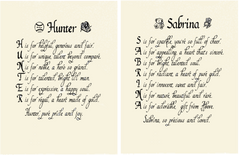 Hunter
H is for helpful, generous and fair.
U is for unique, talent beyond compare.
N is for noble, a hero so grand.
T is for talented, bright
E is for expression, a happy soul.
R is for right, a heart made of gold.
Hunter, pride and joy.
Sabrina
S is for sparkle, you're so full of cheer.
A is for appealing, a heart that's sincere.
B is for bright, talented soul.
R is for radiant, a heart of pure gold.
I is for innocent,
N is for natural, beautiful, and
A is for adorable, gift from Above.
Sabrina, so precious and loved.